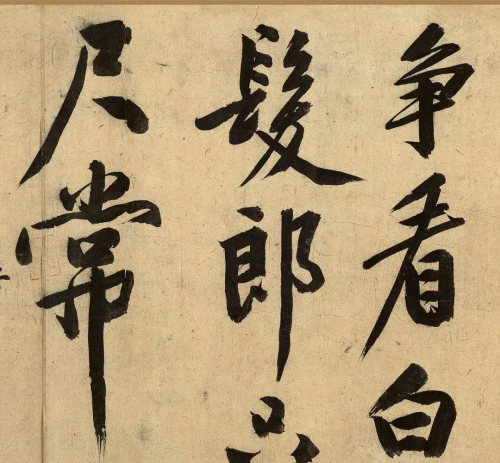 争看白
髮郎
尺常